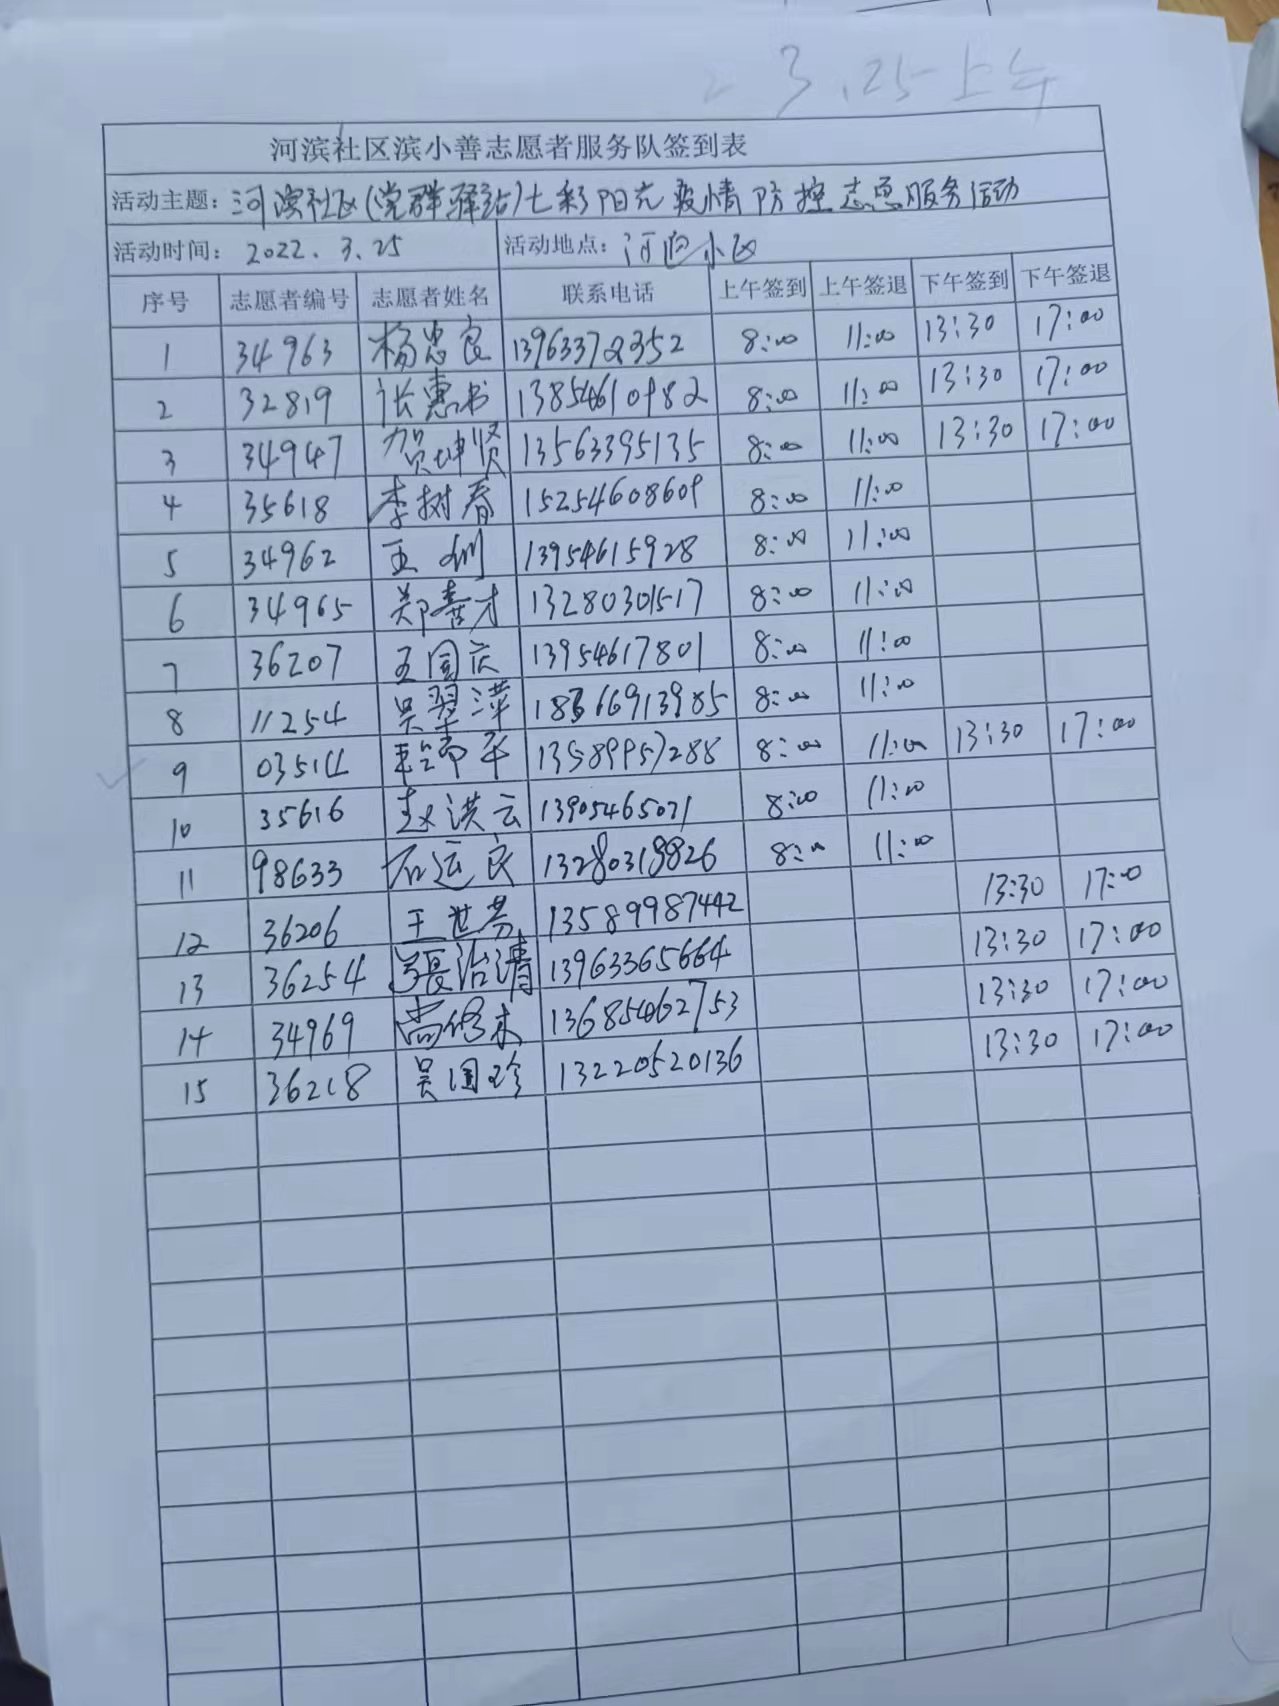 3.25上午
河滨社区滨小善志愿者服务队签到表
活动主题：河滨社区(党群驿站)七彩阳光疫情防控志愿服务活动
活动时间： 2022.3.25 活动地点： 小区
序号 志愿者编号 志愿者姓名 联系电话 上午签到 上午签退 下午签到 下午签退
1 34963 杨忠良 13963372352 8:00 11:00 13:30 17:00
2 32819 张惠书 13854610982 8:00 11:00 13:30 17:00
3 34947 贺坤贤 13563395135 8:00 11:00 13:30 17:00
4 35618 李树春 15254608609 8:00 11:00
5 34962 王 13954615928 8:00 11:00
6 34965 郑喜才 13280301517 8:00 11:00
7 36207 王国庆 13954617801 8:00 11:00
8 11254 吴翠萍 18366913985 8:00 11:00
9 03514 13589957288 8:00 11:00 13:30 17:00
10 35616 赵洪云 13905465071 8:00 11:00
11 98633 石运良 13280318826 8:00 11:00
12 36206 王世芳 13589987442 13:30 17:00
13 36254 張治清 13963365664 13:30 17:00
14 34969 尚修 13685462753 13:30 17:00
15 36218 吴国珍 13220520136 13:30 17:00